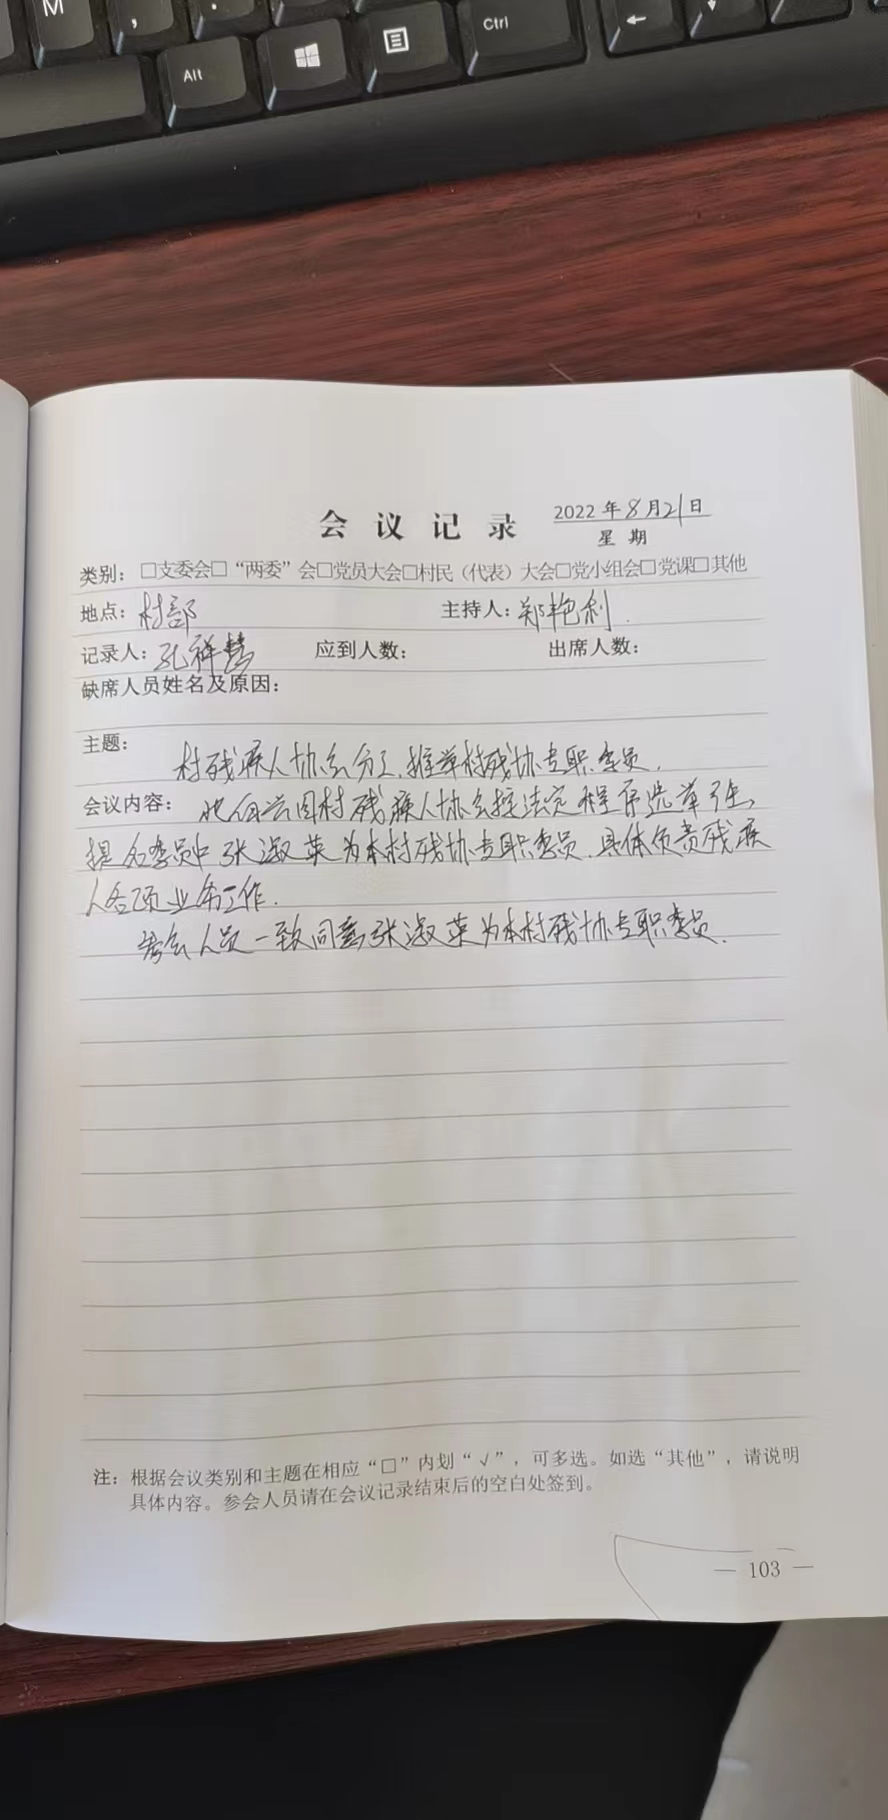 M
Alt
Ctrl
会 议 记 录
2022 年 8 月 21 日
星 期
类别：□支委会□“两委”会□党员大会□村民（代表）大会□党小组会□党课□其他
地点：村部 主持人：郑艳利
记录人：孔祥慧 应到人数： 出席人数：
缺席人员姓名及原因：
主题：
村残疾人协会分工、推举村残协专职委员.
会议内容： 村残疾人协会按法定程序选举产生,
提名委员中张淑英为本村残协专职委员.具体负责残疾
人各项业务工作.
参会人员一致同意张淑英为本村残协专职委员.
注：根据会议类别和主题在相应“□”内划“√”，可多选。如选“其他”，请说明
具体内容。参会人员请在会议记录结束后的空白处签到。
— 103 —